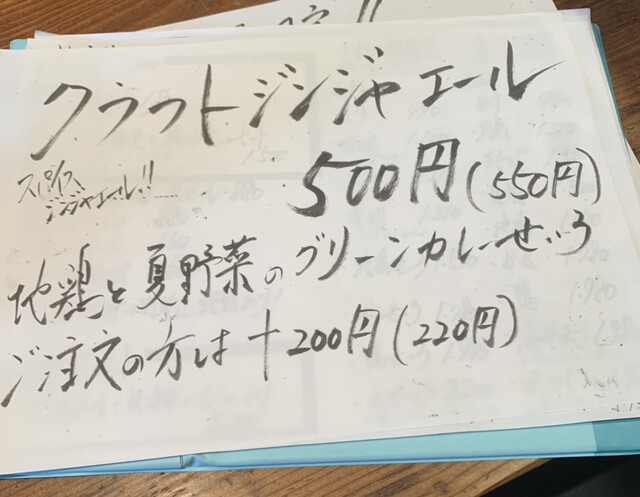 クラフトジンジャエール
500円(550円)
スパイス
ジンジャエール!!
地鶏と夏野菜のグリーンカレーせいろ
ご注文の方は+200円(220円)